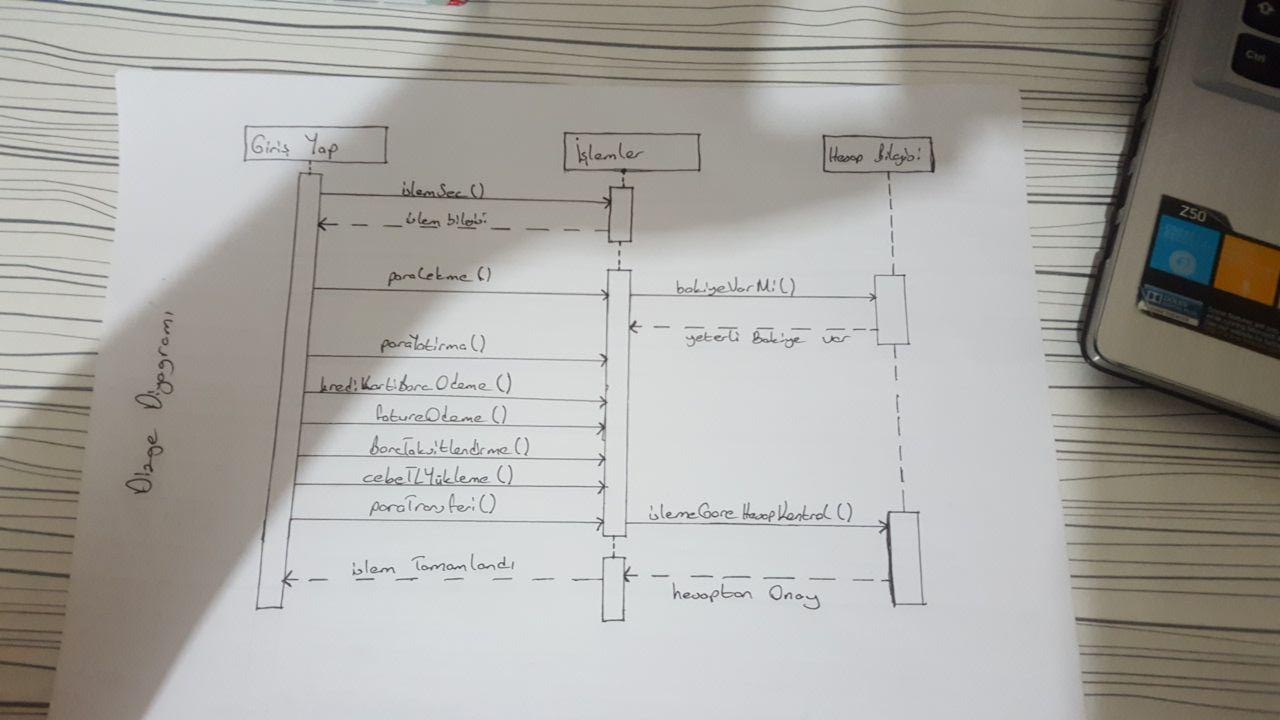 Giriş Yap
İşlemler
Hesap Bilgisi
işlemSec()
işlem bilgisi
paraCekme()
bakiyeVarMi()
yeterli Bakiye var
paraYatirma()
krediKartiBorcOdeme()
faturaOdeme()
borcTaksitlendirme()
cebeTLYükleme()
paraTransferi()
islemeGoreHesapKontrol()
işlem Tamamlandı
hesaptan Onay
Diyagramı
Z50
Ctrl